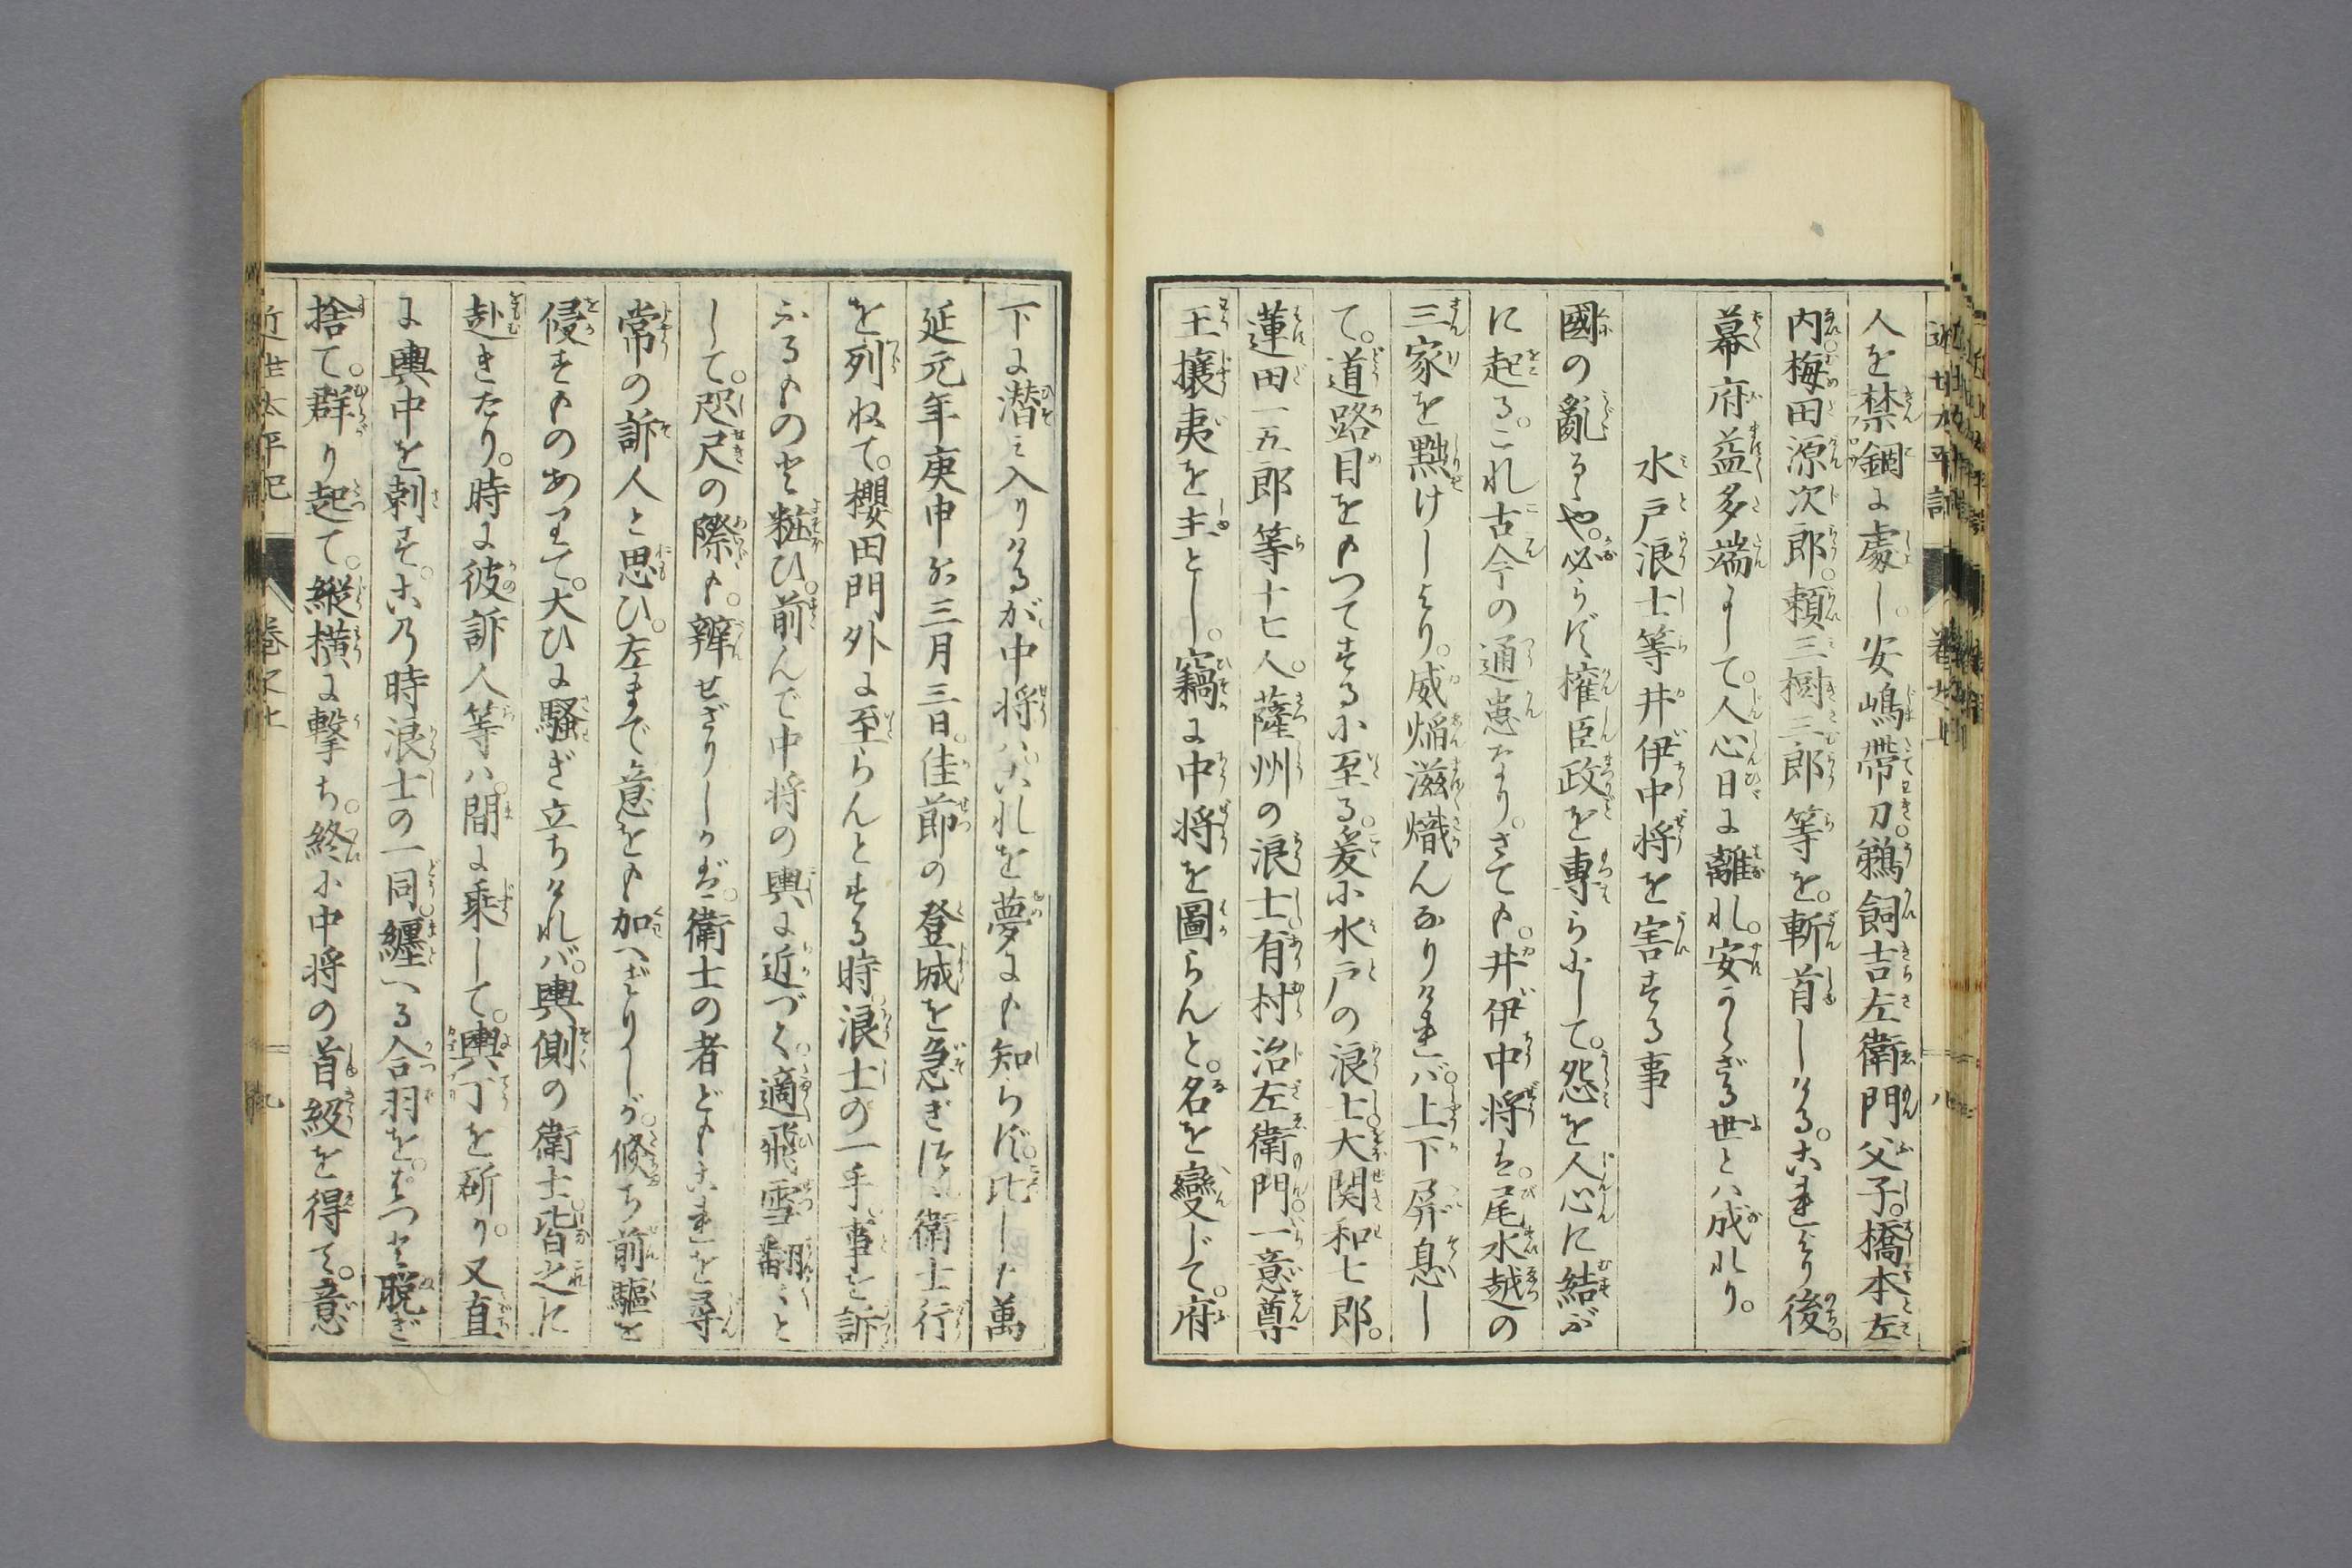 人を禁錮に處し。安嶋帶刀。鵜飼吉左衛門父子。橋本左
内。梅田源次郎。頼三樹三郎等を。斬首しける。これより後。
幕府益多端にして。人心日に離れ。安からざる世とハ成れり。
水戸浪士等井伊中将を害する事
國の亂るゝや。必らず權臣政を專らにして。怨を人心に結ぶ
に起る。これ古今の通患なり。さても。井伊中将は。尾水越の
三家を黜けしより。威焔滋熾んなりければ。上下屏息し
て。道路目をもつてするに至る。爰に水戸の浪士。大関和七郎。
蓮田一五郎等十七人。薩州の浪士。有村治左衛門。一意尊
王攘夷を主とし。竊に中将を圖らんと。名を變じて。府
下に潜ミ入りけるが。中将ハ。これを夢にも知らず。比しも萬
延元年庚申の三月三日。佳節の登城を急ぎけり。衛士行
を列ねて。櫻田門外に至らんとする時。浪士の一手事を訴
ふるものと粧ひ。前んで中将の輿に近づく。適飛雪翻々と
して。咫尺の際も。辨せざりしかば。衛士の者どもこれを尋
常の訴人と思ひ。左まで意をも加へざりしが。倏ち前驅を
侵すものありて。大ひに騒ぎ立ちけれバ。輿側の衛士皆之に
赴きたり。時に彼訴人等ハ。間に乘して。輿丁を斫り。又直
に輿中を刺す。この時浪士の一同纏へる合羽を。はつと脱ぎ
捨て。群り起て。縦横に撃ち。終に中将の首級を得て。意
近世太平記
巻之上
八
九